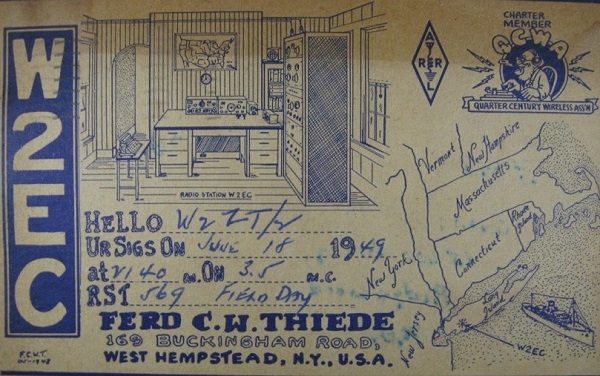 W2EC
RADIO STATION W2EC
A
R R
L
CHARTER
MEMBER
QCWA
QUARTER CENTURY WIRELESS ASS'N
HELLO W2ZT/2
UR SIGS ON JUNE 18 1949
at 2140 ON 3.5 M.C.
RST 569 FIELD DAY
FERD C.W. THIEDE
169 BUCKINGHAM ROAD,
WEST HEMPSTEAD, N.Y., U.S.A.
F.C.W.T.
Vermont
New Hampshire
Massachusetts
Rhode Island
Connecticut
New York
Long Island
New Jersey
W2EC